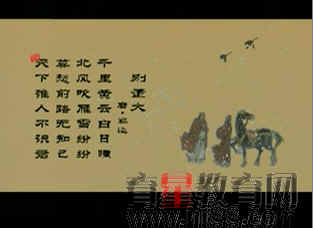 别董大
唐·高适
千里黄云白日曛
北风吹雁雪纷纷
莫愁前路无知己
天下谁人不识君
育星教育网
www.ht88.com